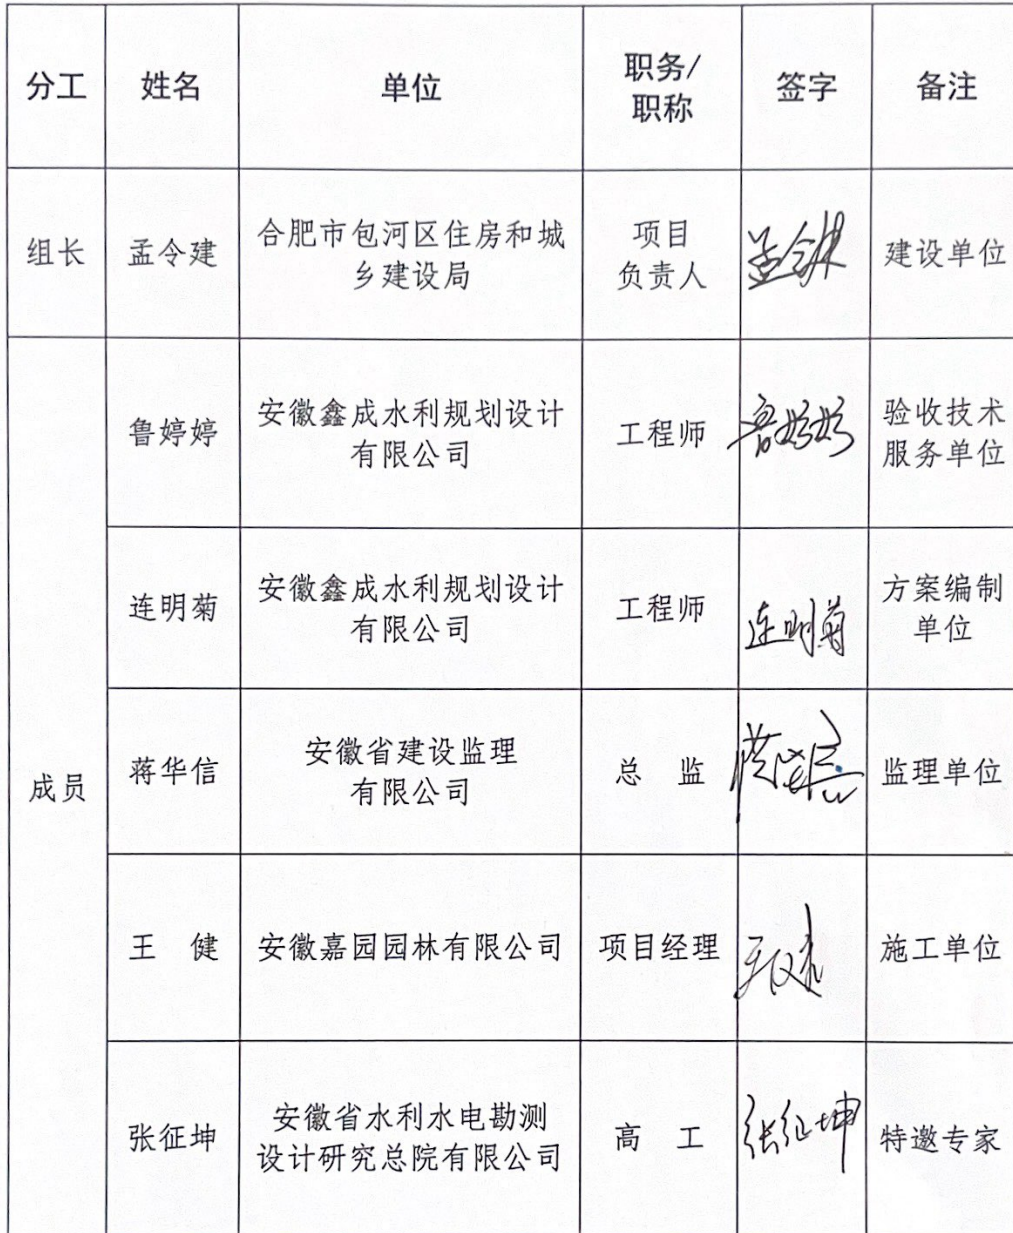 分工 姓名 单位 职务/职称 签字 备注
组长 孟令建 合肥市包河区住房和城乡建设局 项目负责人 孟令建 建设单位
成员 鲁婷婷 安徽鑫成水利规划设计有限公司 工程师 鲁婷婷 验收技术服务单位
连明菊 安徽鑫成水利规划设计有限公司 工程师 连明菊 方案编制单位
蒋华信 安徽省建设监理有限公司 总 监 监理单位
王 健 安徽嘉园园林有限公司 项目经理 王健 施工单位
张征坤 安徽省水利水电勘测设计研究总院有限公司 高 工 张征坤 特邀专家